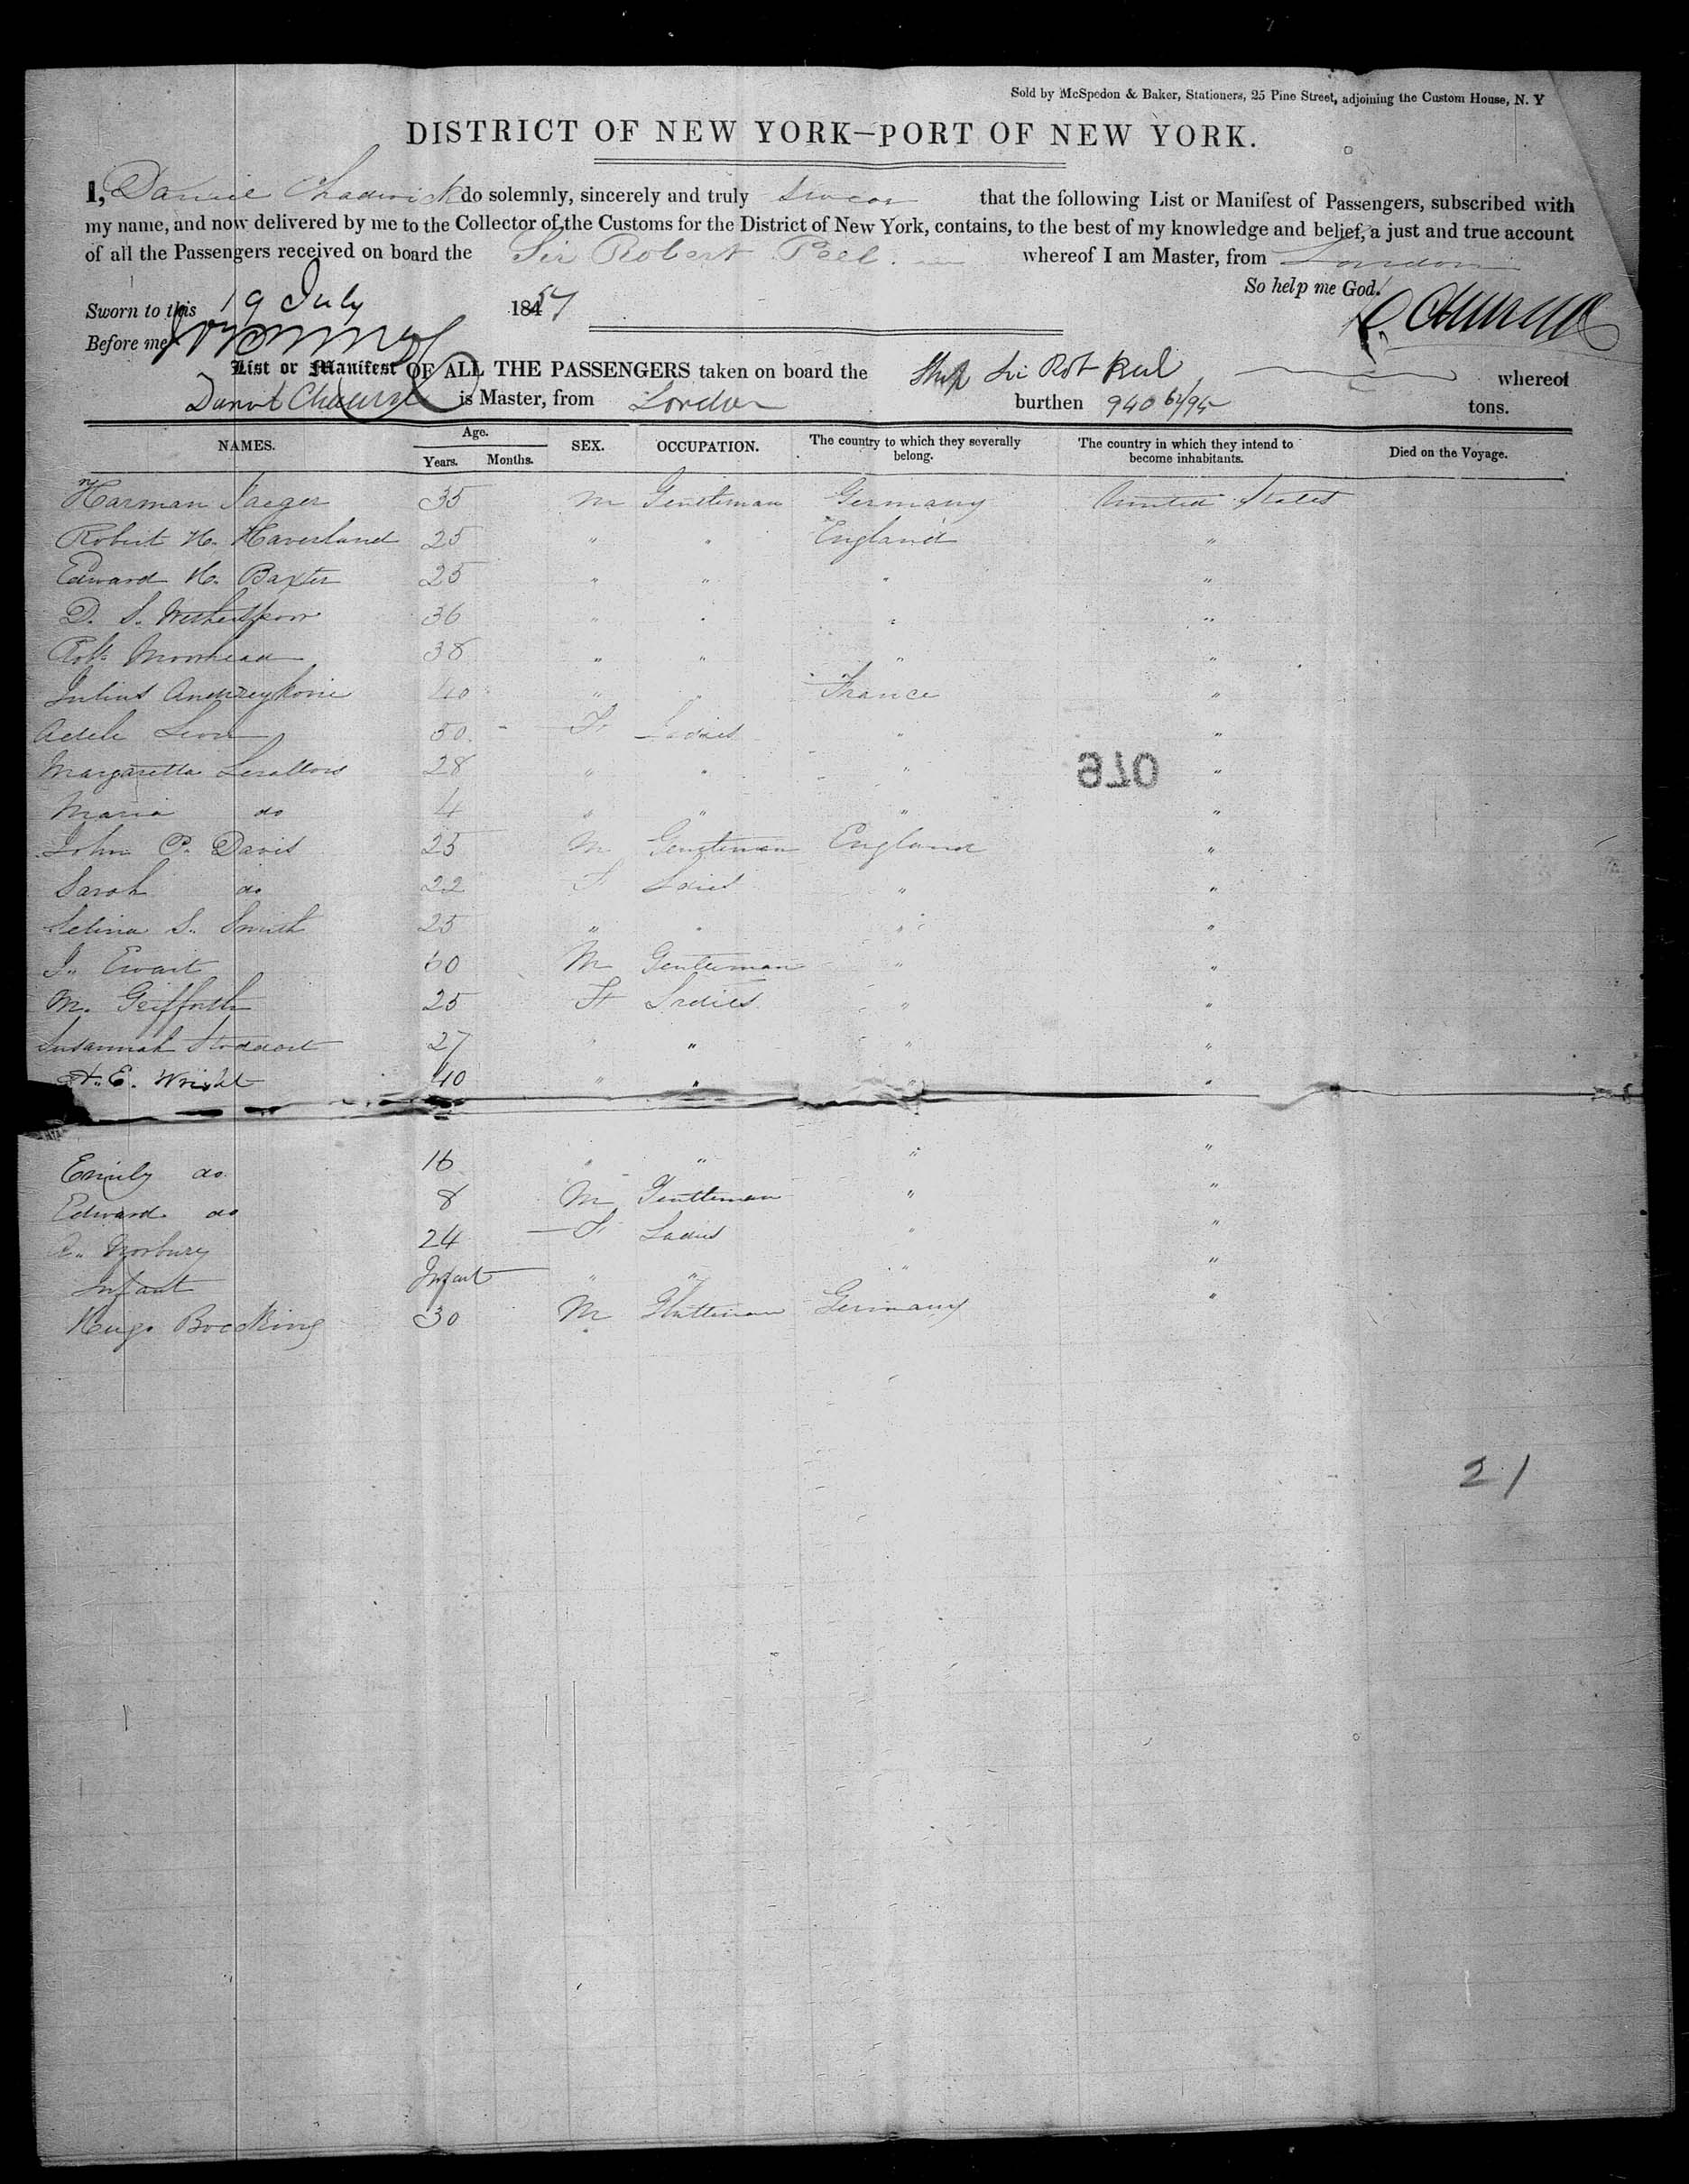 Sold by McSpedon & Baker, Stationers, 25 Pine Street, adjoining the Custom House, N. Y
DISTRICT OF NEW YORK—PORT OF NEW YORK.
I, Daniel Chadwick do solemnly, sincerely and truly swear that the following List or Manifest of Passengers, subscribed with
my name, and now delivered by me to the Collector of the Customs for the District of New York, contains, to the best of my knowledge and belief, a just and true account
of all the Passengers received on board the Sir Robert Peel. whereof I am Master, from London
So help me God.
Sworn to this 19 July 184
Before me
List or Manifest OF ALL THE PASSENGERS taken on board the Ship Sir Rot Peel whereof
is Master, from London burthen 940 64/95 tons.
NAMES. Age. Years. Months. SEX. OCCUPATION. The country to which they severally belong. The country in which they intend to become inhabitants. Died on the Voyage.
Harman Jaeger 35 M Gentleman Germany United States
Robert H. Haverland 25 " " England "
Edward H. Baxter 25 " " " "
D. S. Witherspoon 36 " " " "
Robt Moorhead 38 " " " "
Julius 40 " " France "
Adele Leon 50 F Ladies " "
Margaretta 28 " " " "
Maria do 4 " " " "
John P. Davis 25 M Gentleman England "
Sarah do 22 F Ladies " "
Selina S. Smith 25 " " " "
J. Ewart 60 M Gentleman " "
M. Griffith 25 F Ladies " "
Susannah Stoddart 27 " " " "
E. Wright 40 " " " "
Emily do 16 " " " "
Edward do 8 M Gentleman " "
Norbury 24 F Ladies " "
Infant Infant " " " "
Hugo Bocking 30 M Gentleman Germany "
970
21